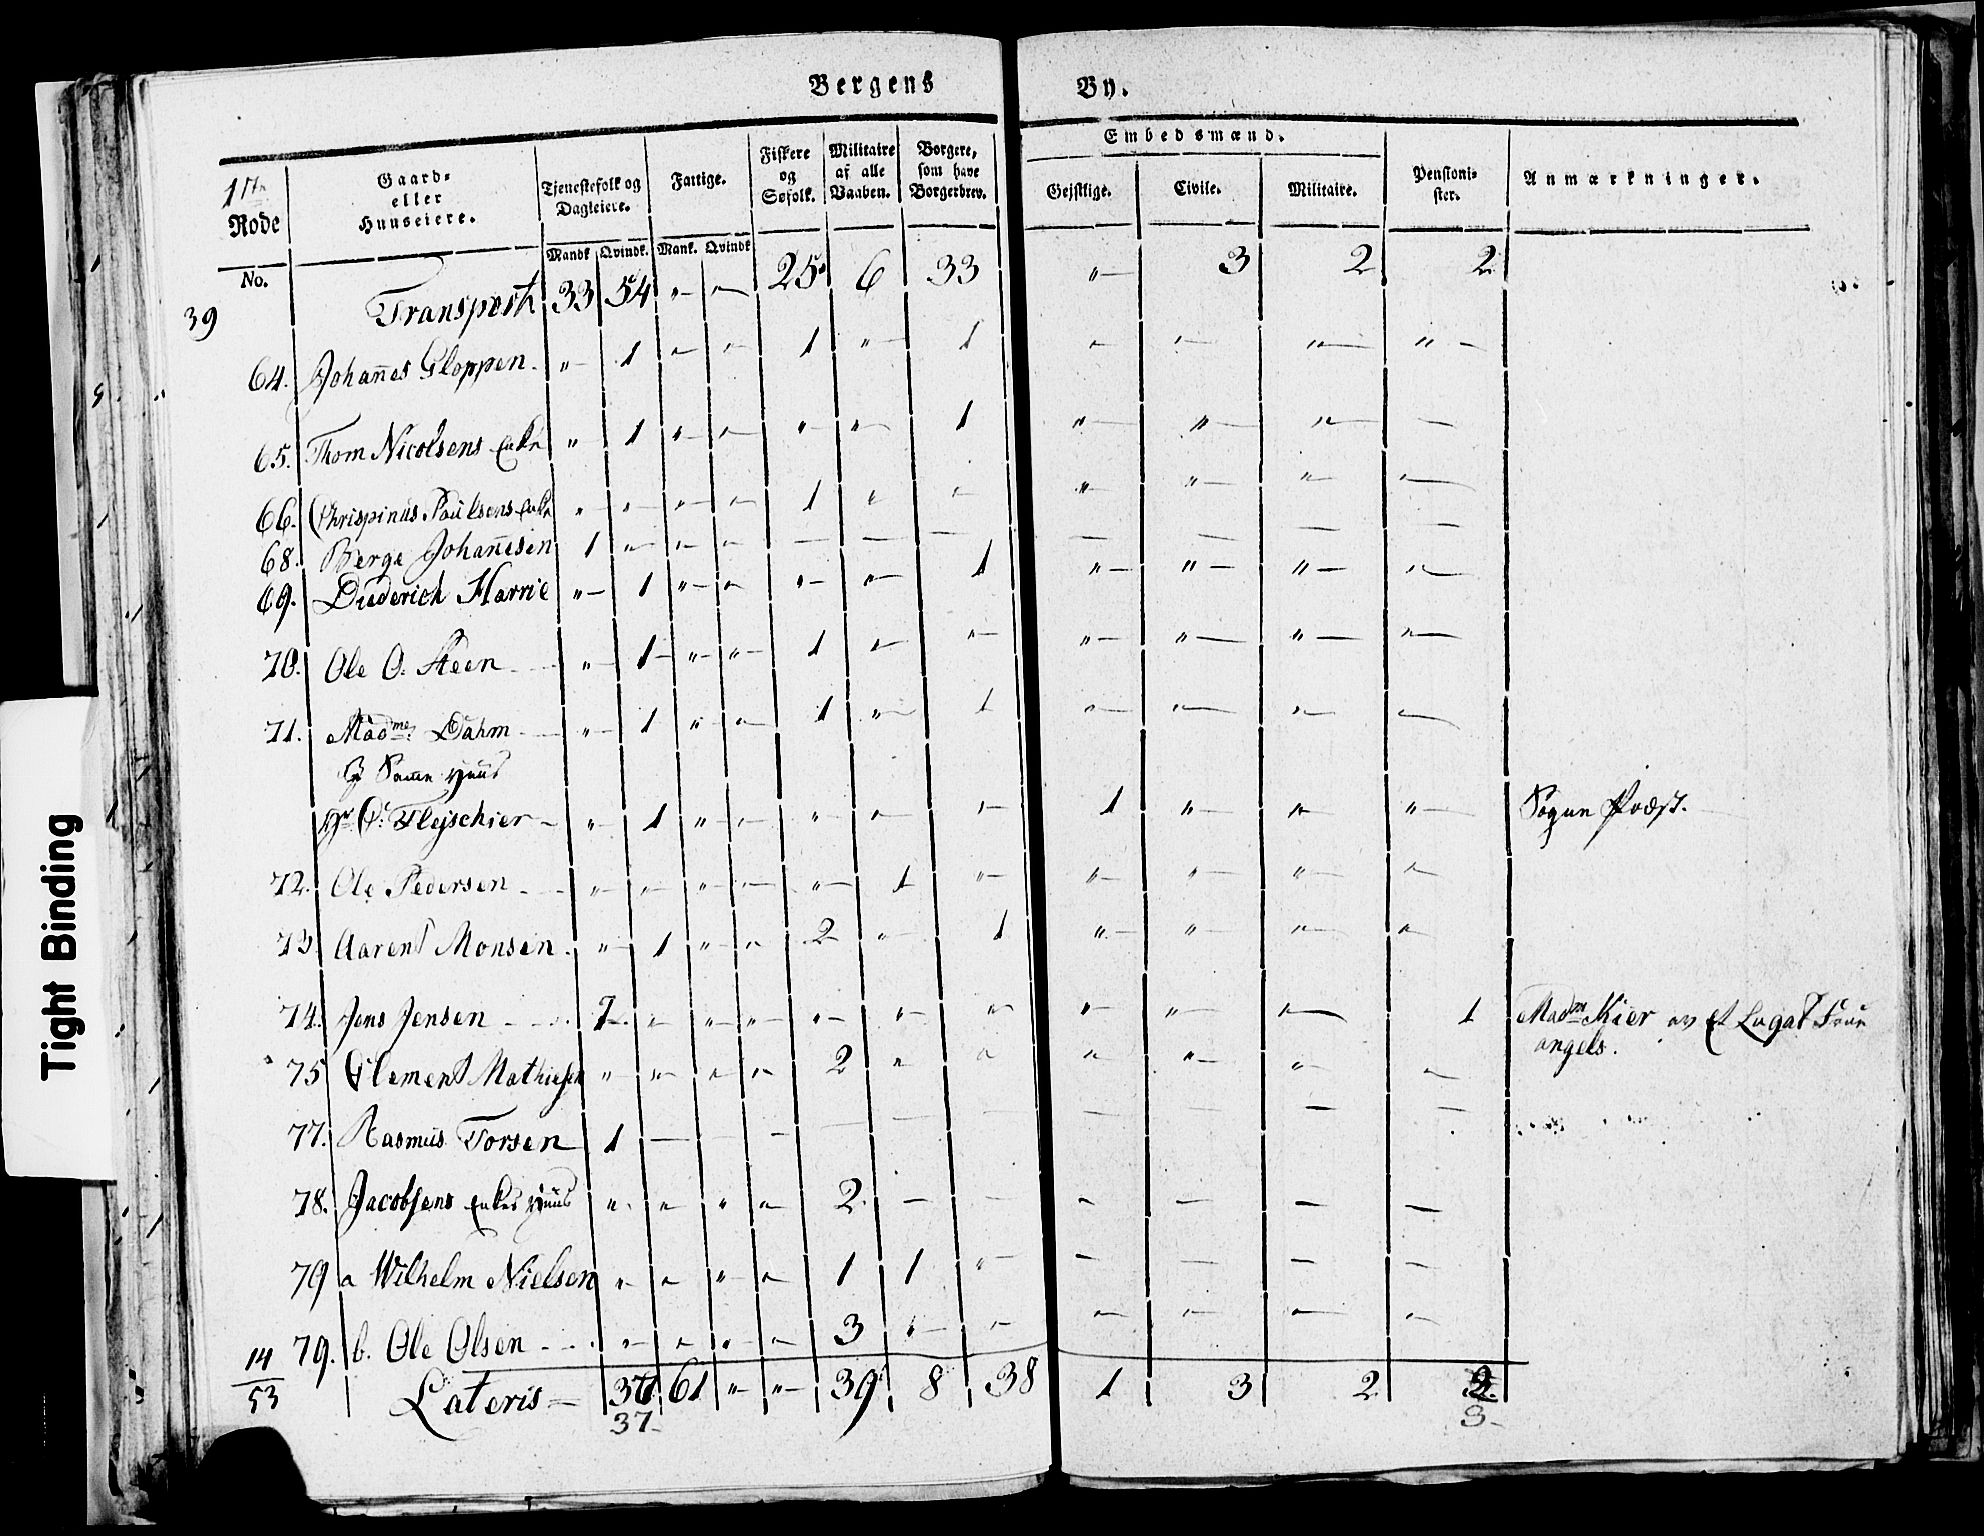 Bergens By.
17de Rode
No.
Gaard- eller Huuseiere.
Tjenestefolk og Dagleiere.
Mandk Qvindk.
Fattige.
Mank. Qvindk
Fiskere og Søfolk.
Militaire af alle Vaaben.
Borgere, som have Borgerbrev.
Embedsmænd.
Gejstlige.
Civile.
Militaire.
Pensionister.
Anmærkninger.
39 Transport 33 54 " " 25 6 33 " 3 2 2
64. Johannes Gloppen. " 1 " " 1 " 1 " " " "
65. Thom Nicolsens Enke " 1 " " " " 1 " " " —
66. Chrispinus Poulsens Enke " " " " 1 " " " " " "
68. Berge Johannesen 1 " " " — — — — — — —
69. Diederich Harrie " 1 " " " " 1 " " " "
70. Ole O. Steen " 1 " " 1 " " " " " "
71. Madme: Dahm " 1 " " 1 " 1 " " " "
I Samme Huus
Hr C: Flejschier " 1 " " " " " 1 " " " Sogne Præst.
72. Ole Pedersen " " " " " 1 " " " " "
73 Aarent Monsen. " 1 " " 2 " 1 " " " "
74. Jens Jensen 2 " " " " " " " " " 1 Madm Kier av et Legat
75 Clement Mathiesen " " " " 2 " " " " " "
77. Rasmus Torsen 1 — — — — — — — — — —
78. Jacobsens Enkes Huus " " " " 2 — — " — — —
79 a Wilhelm Nielsen " " " " 1 1 " — — — —
79. b. Ole Olsen " " " " 3 " " " " " "
14
53
Lateris = 61 " " 39 8 38 1 3 2
37
3
Tight Binding